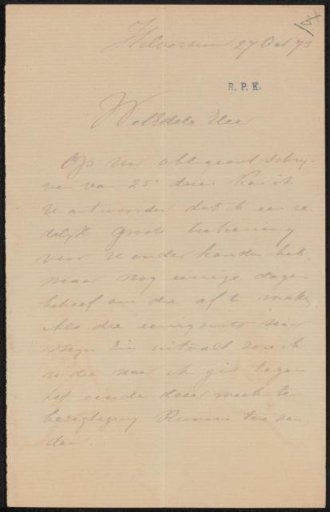 Hilversum 27 Oct 73
R. P. K.
WelEdele Heer
Op Uw obligeant schrij
ven van 25 dezer kan ik
U antwoorden dat ik een re
delijk groote teekening
voor U onder handen heb
maar nog eenige dagen
behoef om die af te maken.
Als die eenigzints naar
mijn zin uitvalt zou ik
U die naar ik gis tegen
het einde dezer week te
bezigtiging kunnen toe zen
den.